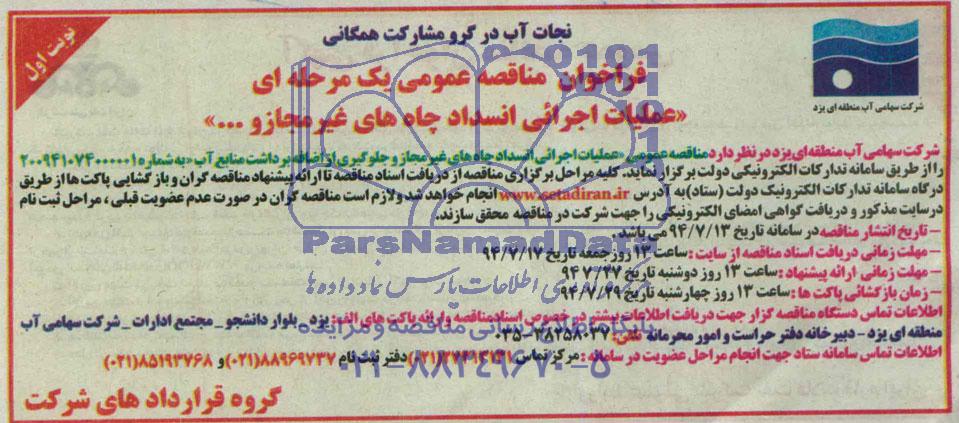 نوبت اول
نجات آب در گرو مشارکت همگانی
فراخوان مناقصه عمومی یک مرحله ای
«عملیات اجرائی انسداد چاه های غیرمجاز و ...»
شرکت سهامی آب منطقه ای یزد
شرکت سهامی آب منطقه ای یزد در نظر دارد مناقصه عمومی «عملیات اجرائی انسداد چاه های غیر مجاز و جلوگیری از اضافه برداشت منابع آب» به شماره ۲۰۰۹۴۱۰۷۴۰۰۰۰۰۱
را از طریق سامانه تدارکات الکترونیکی دولت برگزار نماید. کلیه مراحل برگزاری مناقصه از دریافت اسناد مناقصه تا ارائه پیشنهاد مناقصه گران و بازگشایی پاکت ها از طریق
درگاه سامانه تدارکات الکترونیک دولت (ستاد) به آدرس www.setadiran.ir انجام خواهد شد و لازم است مناقصه گران در صورت عدم عضویت قبلی ، مراحل ثبت نام
در سایت مذکور و دریافت گواهی امضای الکترونیکی را جهت شرکت در مناقصه محقق سازند.
– تاریخ انتشار مناقصه در سامانه تاریخ ۹۴/۷/۱۳ می باشد .
– مهلت زمانی دریافت اسناد مناقصه از سایت : ساعت ۱۳ روز جمعه تاریخ ۹۴/۷/۱۷
– مهلت زمانی ارائه پیشنهاد : ساعت ۱۳ روز دوشنبه تاریخ ۹۴/۷/۲۷
– زمان بازگشائی پاکت ها : ساعت ۱۳ روز چهارشنبه تاریخ ۹۴/۷/۲۹
اطلاعات تماس دستگاه مناقصه گزار جهت دریافت اطلاعات بیشتر در خصوص اسناد مناقصه و ارائه پاکت های الف: یزد_ بلوار دانشجو _ مجتمع ادارات _ شرکت سهامی آب
منطقه ای یزد- دبیرخانه دفتر حراست و امور محرمانه تلفن: ۳۸۲۵۸۰۳۷-۰۳۵
اطلاعات تماس سامانه ستاد جهت انجام مراحل عضویت در سامانه : مرکز تماس (۰۲۱) دفتر ثبت نام ۸۸۹۶۹۷۳۷(۰۲۱) و ۸۵۱۹۳۷۶۸(۰۲۱)
گروه قراردادهای شرکت
ParsNamadData
پایگاه اطلاع رسانی مناقصه و مزایده
۰۲۱-۸۸۳۴۹۶۷۰-۵